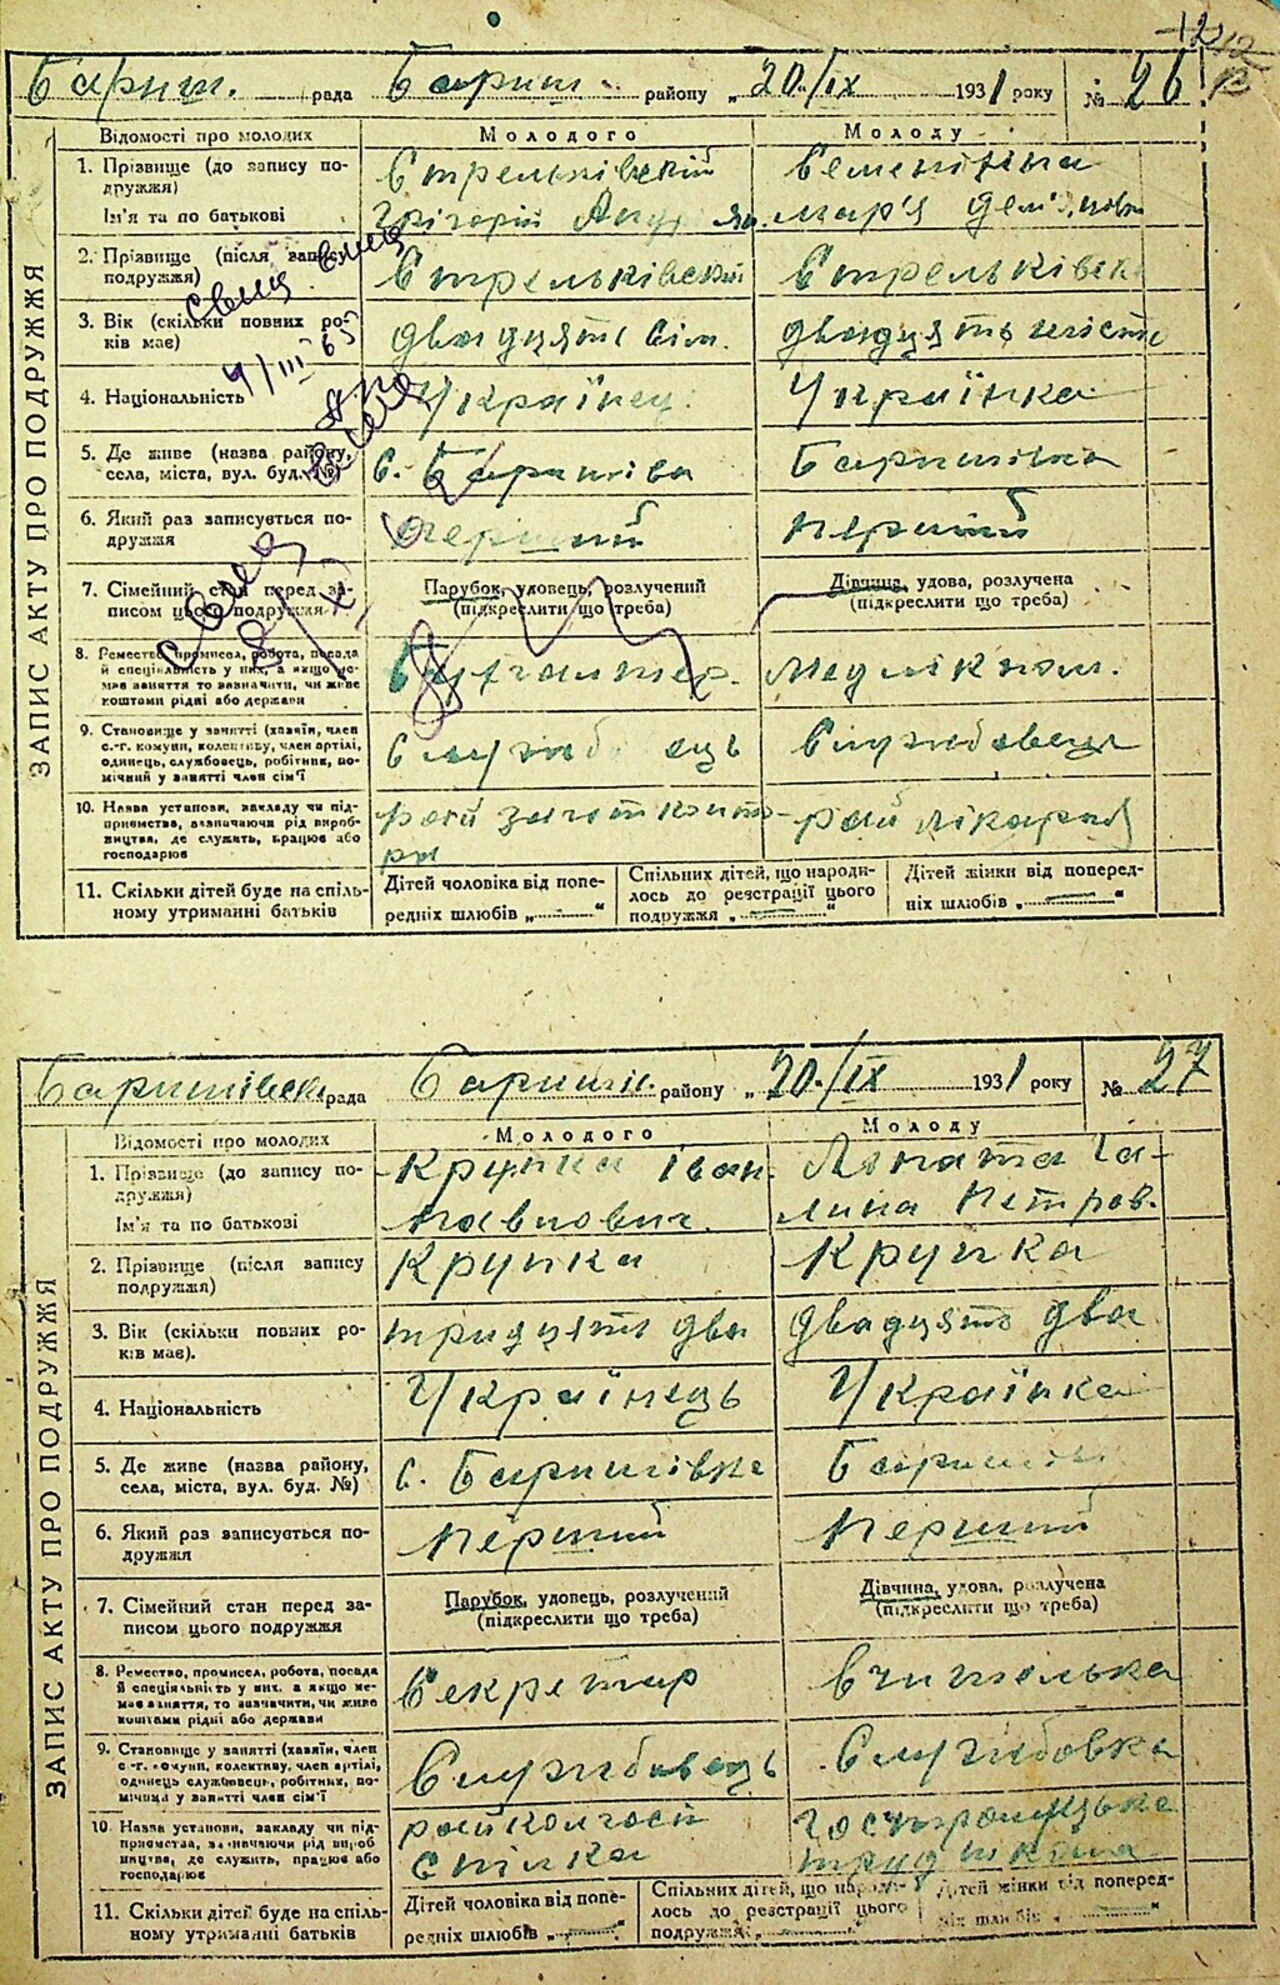 12 12
Бариш. рада Бариш. району „20./IX 1931 року № 26
ЗАПИС АКТУ ПРО ПОДРУЖЖЯ
Відомості про молодих Молодого Молоду
1. Прізвище (до запису по- Стрельківский
дружжя)
Ім'я та по батькові Григорій мар'я
2. Прізвище (після запису Стрельківский Стрельківск
подружжя)
3. Вік (скільки повних ро- двадцять сім. двадцять шість
ків має)
4/III 65
4. Національність Українец. Українка
5. Де живе (назва району, с. Баришівка Баришівка
села, міста, вул. буд. №)
6. Який раз записується по- перший перший
дружжя
7. Сімейний стан перед за- Парубок, удовець, розлучений Дівчина, удова, розлучена
писом цього подружжя (підкреслити що треба) (підкреслити що треба)
8. Ремество, промисел, робота, посада Бухгалтер.
й спеціальність у них, а якщо не-
має заняття то зазначити, чи живе
коштами рідні або держави
9. Становище у занятті (хазяїн, член Службовець Службовець
с.-г. комуни, колективу, член артілі,
одинець, службовець, робітник, по-
мічний у занятті член сім'ї
10. Назва установи, закладу чи під- рай заготконто-
приємства, зазначаючи рід вироб- ра
ництва, де служить, працює або
господарює
11. Скільки дітей буде на спіль- Дітей чоловіка від попе- Спільних дітей, що народи- Дітей жінки від поперед-
ному утриманні батьків редніх шлюбів „ — “ лось до реєстрації цього ніх шлюбів „ — “
подружжя „ — “
Баришівськ рада Баришів. району „20./IX 1931 року № 27
ЗАПИС АКТУ ПРО ПОДРУЖЖЯ
Відомості про молодих Молодого Молоду
1. Прізвище (до запису по- Крупка Іван Лопата Га-
дружжя)
Ім'я та по батькові Павлович. лина Петров.
2. Прізвище (після запису Крупка Крупка
подружжя)
3. Вік (скільки повних ро- тридцять два двадцять два
ків має).
4. Національність Українець Українка
5. Де живе (назва району, с. Баришівка Баришівк
села, міста, вул. буд. №)
6. Який раз записується по- перший перший
дружжя
7. Сімейний стан перед за- Парубок, удовець, розлучений Дівчина, удова, розлучена
писом цього подружжя (підкреслити що треба) (підкреслити що треба)
8. Ремество, промисел, робота, посада Секретар Вчителька
й спеціяльність у них, а якщо не-
має заняття, то зазначити, чи живе
коштами рідні або держави
9. Становище у занятті (хазяїн, член Службовець Службовка
с.-г. комуни, колективу, член артілі,
одинець службовець, робітник, по-
мічниця у занятті член сім'ї
10 Назва установи, закладу чи під- райколгосп
приємства, зазначаючи рід вироб спілка труд школа
ництва, де служить, працює або
господарює
11. Скільки дітей буде на спіль- Дітей чоловіка від попе- Спільних дітей, що народи- Дітей жінки від поперед-
ному утриманні батьків редніх шлюбів „ — “ лось до реєстрації цього ніх шлюбів „ — “
подружжя „ — “